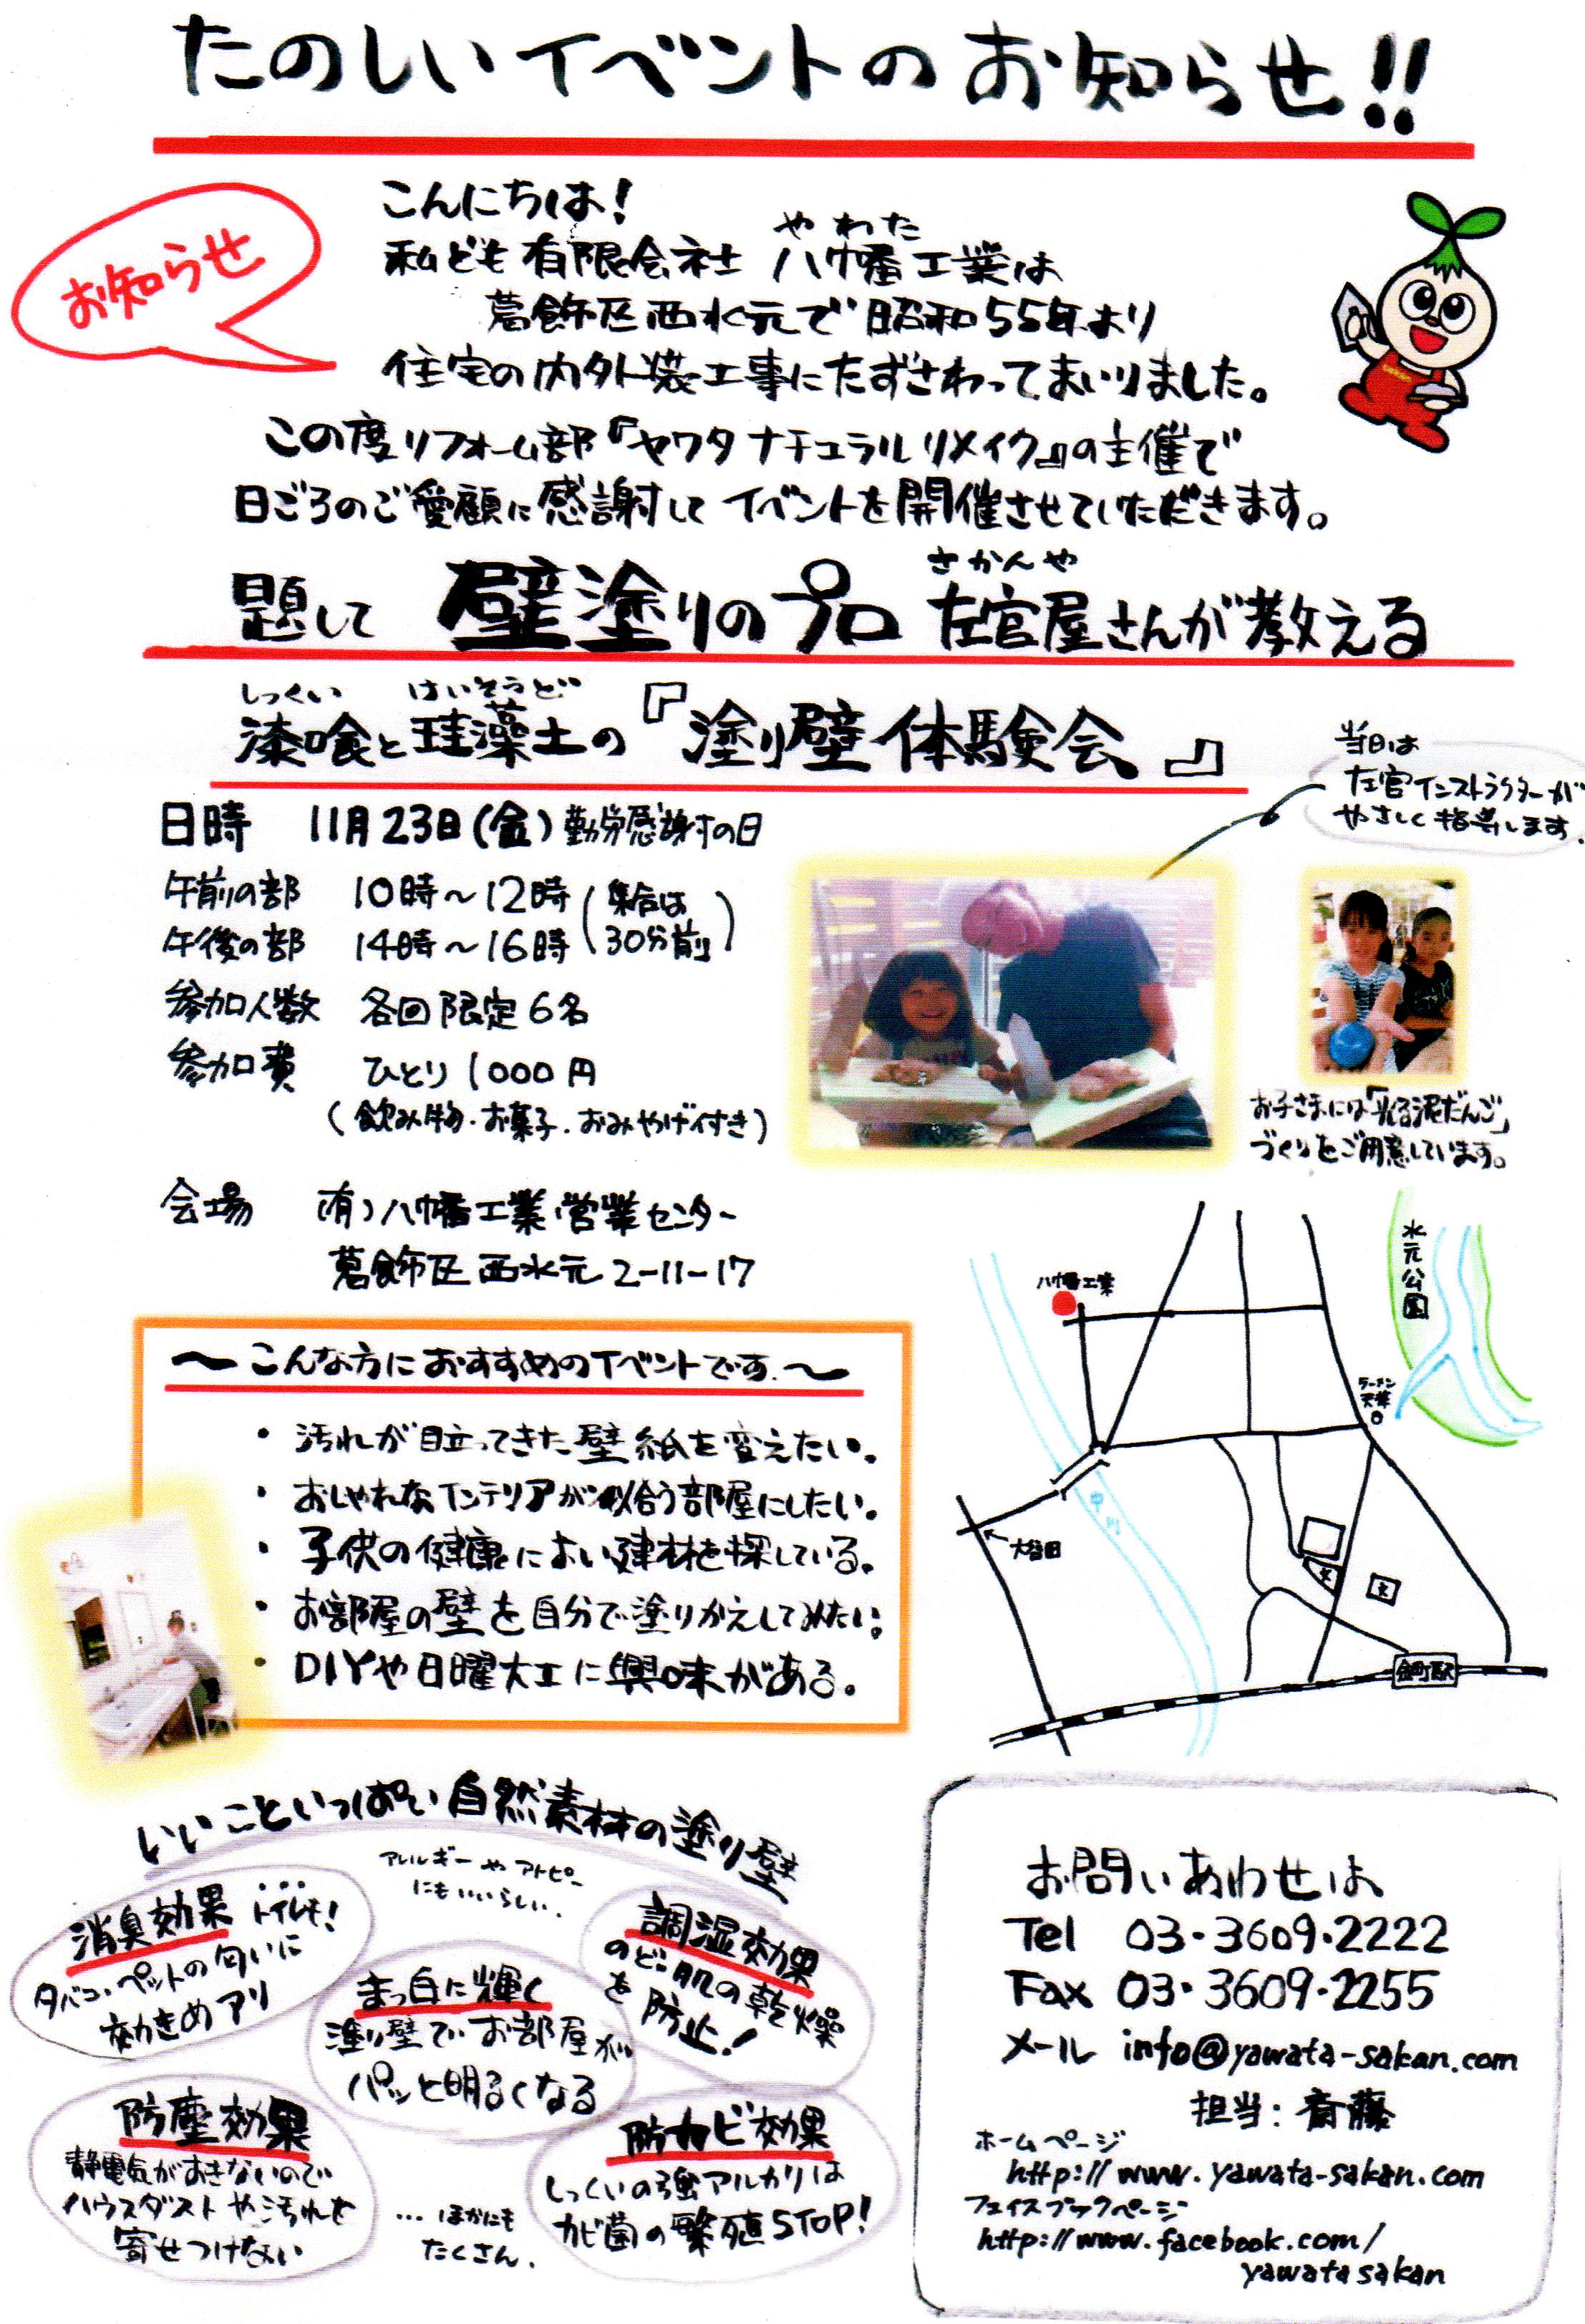 たのしいイベントのお知らせ!!
お知らせ
こんにちは!
やわた
私ども有限会社 八幡工業は
葛飾区西水元で昭和55年より
住宅の内外装工事にたずさわってまいりました。
この度リフォーム部『ヤワタナチュラルリメイク』の主催で
日ごろのご愛顧に感謝してイベントを開催させていただきます。
さかんや
題して 壁塗りのプロ 左官屋さんが教える
しっくい けいそうど
漆喰と珪藻土の『塗り壁体験会』
当日は
左官インストラクターが
やさしく指導します。
日時 11月23日(金)勤労感謝の日
午前の部 10時~12時(集合は
午後の部 14時~16時 30分前)
参加人数 各回限定6名
参加費 ひとり1000円
(飲み物・お菓子・おみやげ付き)
お子さまには「光る泥だんご」
づくりをご用意しています。
会場 (有)八幡工業営業センター
葛飾区西水元2-11-17
八幡工業
水元公園
ラーメン
天華
中川
大谷田
文
文
金町駅
~こんな方におすすめのイベントです.~
・汚れが目立ってきた壁紙を変えたい。
・おしゃれなインテリアが似合う部屋にしたい。
・子供の健康によい建材を探している。
・お部屋の壁を自分で塗りかえしてみたい。
・DIYや日曜大工に興味がある。
いいこといっぱい自然素材の塗り壁
アレルギーやアトピー
にもいいらしい.
消臭効果…トイレも!
タバコ、ペットの匂いに
効きめアリ
調湿効果
のど・肌の乾燥
を防止!
まっ白に輝く
塗り壁でお部屋が
パッと明るくなる
防塵効果
静電気がおきないので
ハウスダストや汚れを
寄せつけない
防カビ効果
しっくいの強アルカリは
カビ菌の繁殖STOP!
…ほかにも
たくさん.
お問いあわせは
Tel 03・3609・2222
Fax 03・3609・2255
メール info@yawata-sakan.com
担当:斎藤
ホームページ
http://www.yawata-sakan.com
フェイスブックページ
http://www.facebook.com/
yawatasakan